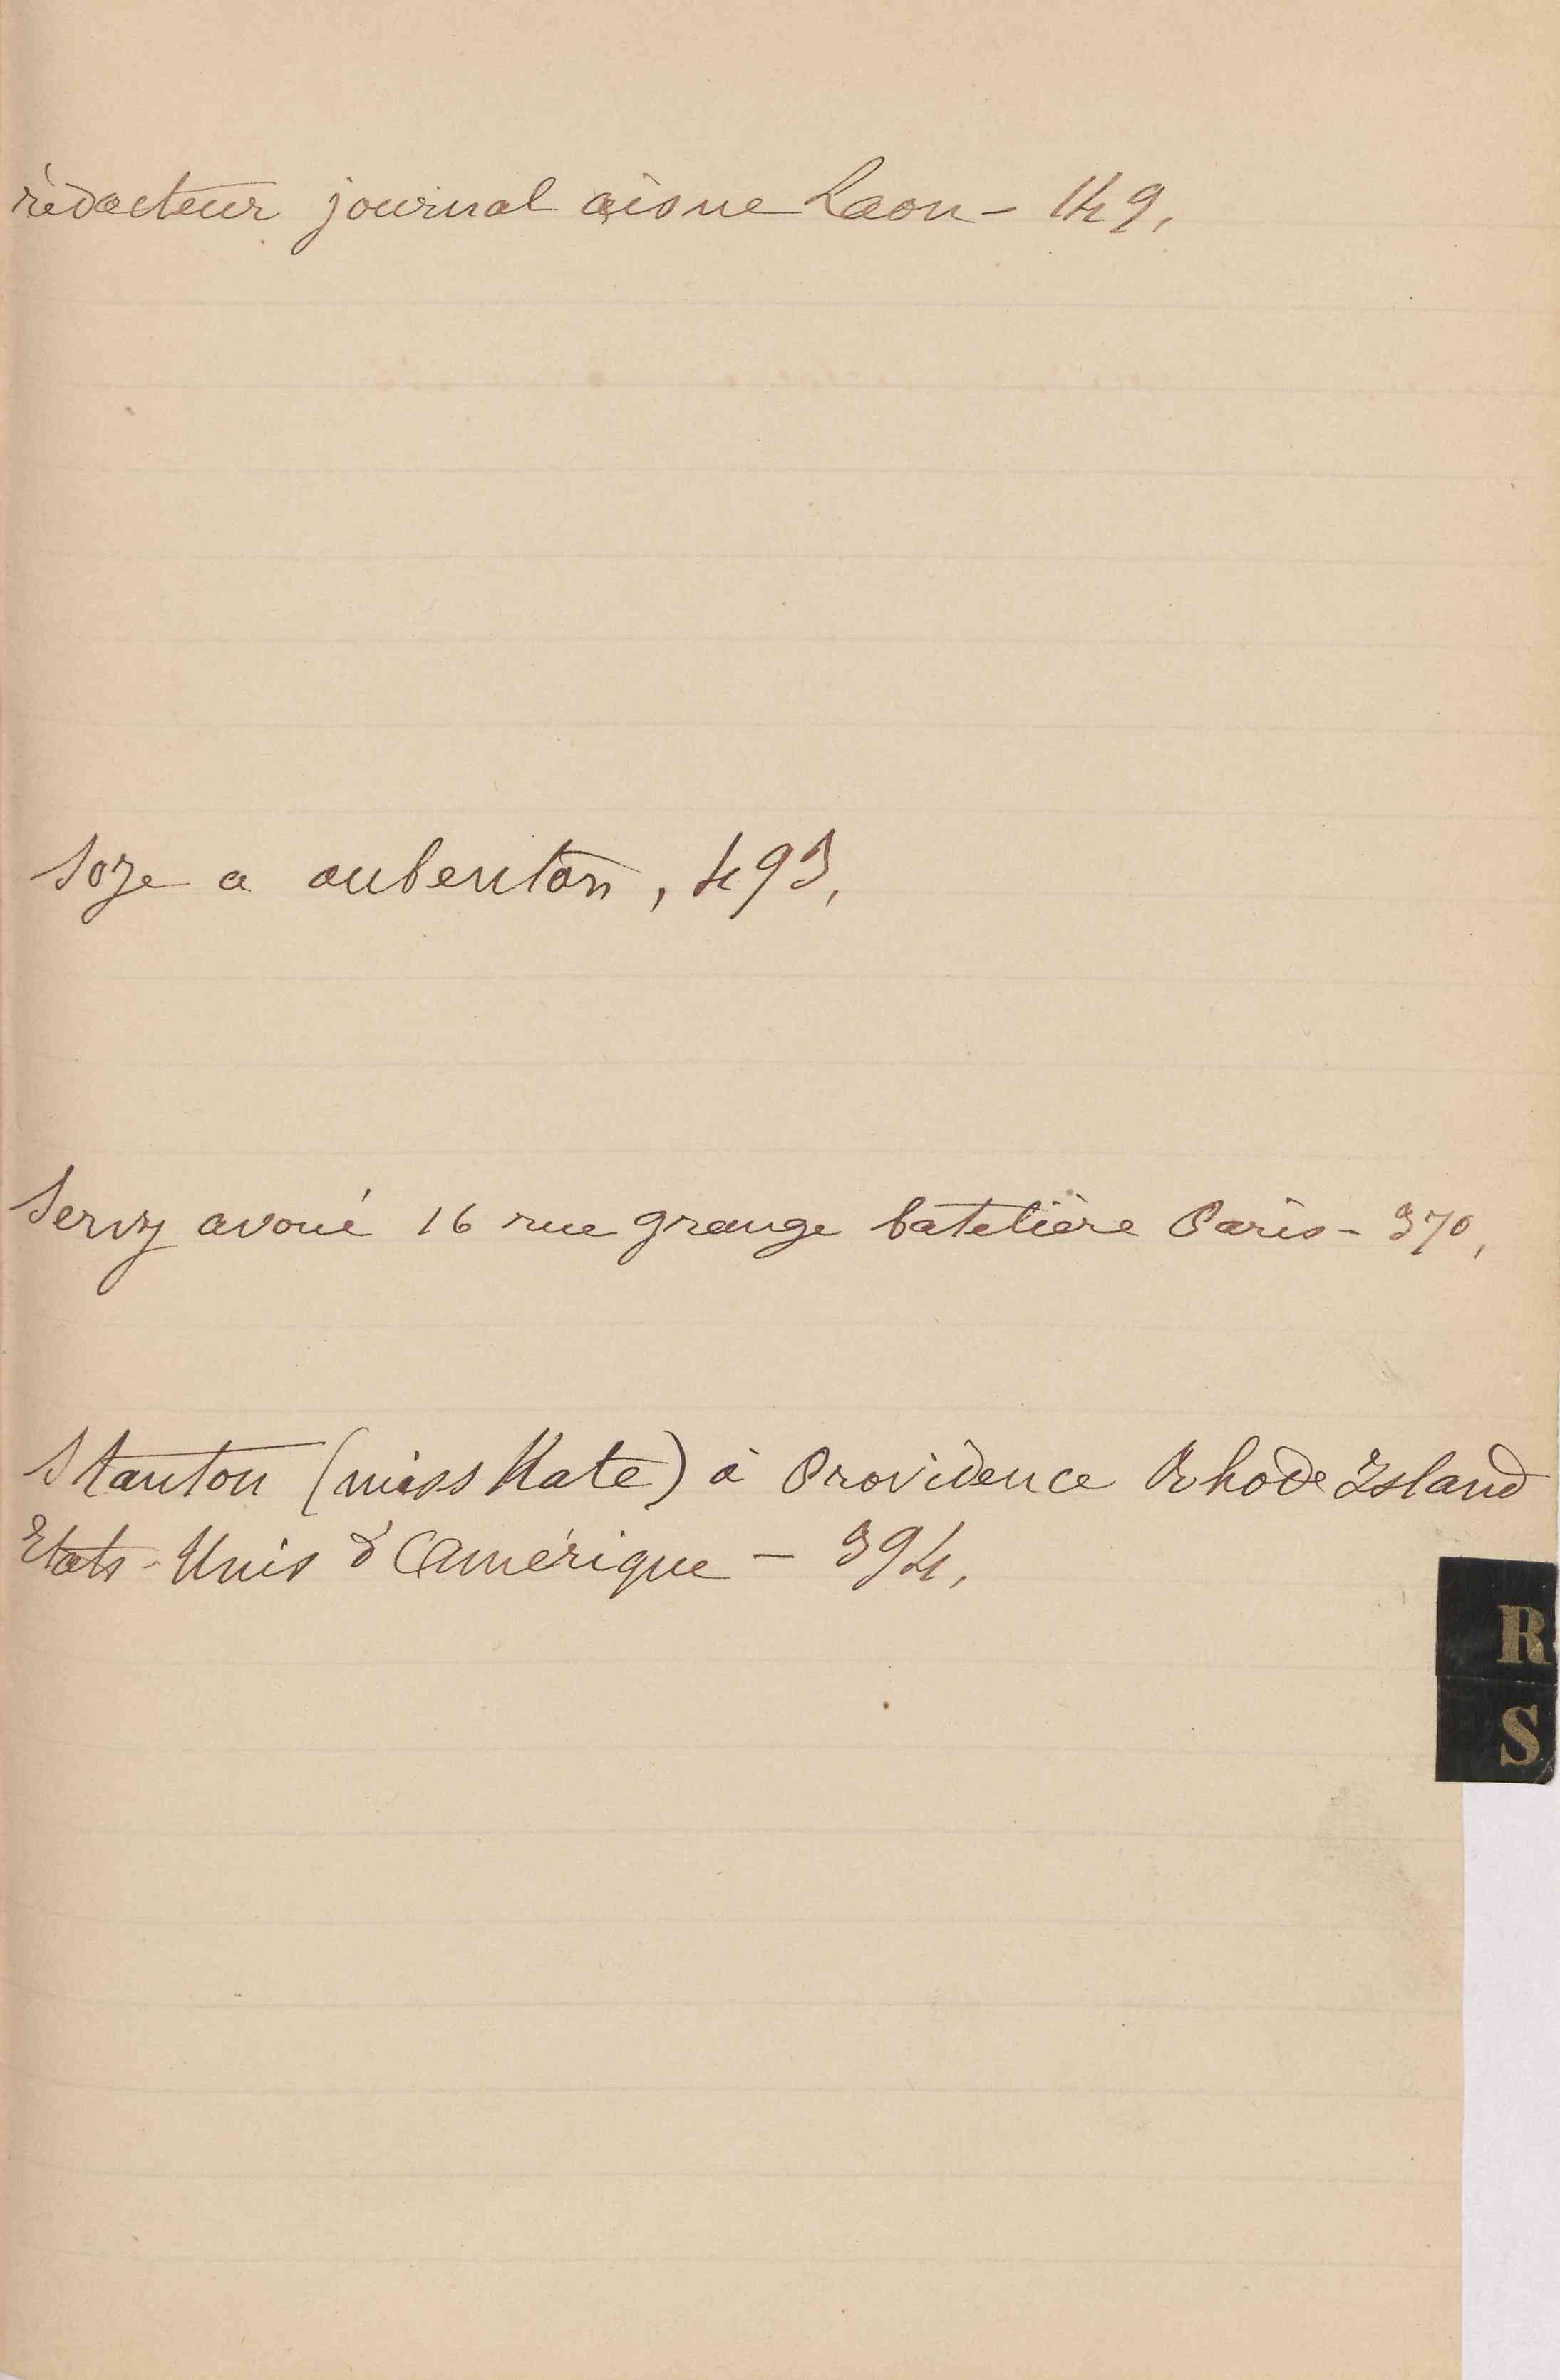 rédacteur journal aisne Laon - 149,
Soze a aubenton, 493,
Servy avoué 16 rue grange batelière Paris - 370,
Stanton (miss Kate) à Providence Rhode Island
Etats-Unis d'Amérique - 394,
R
S